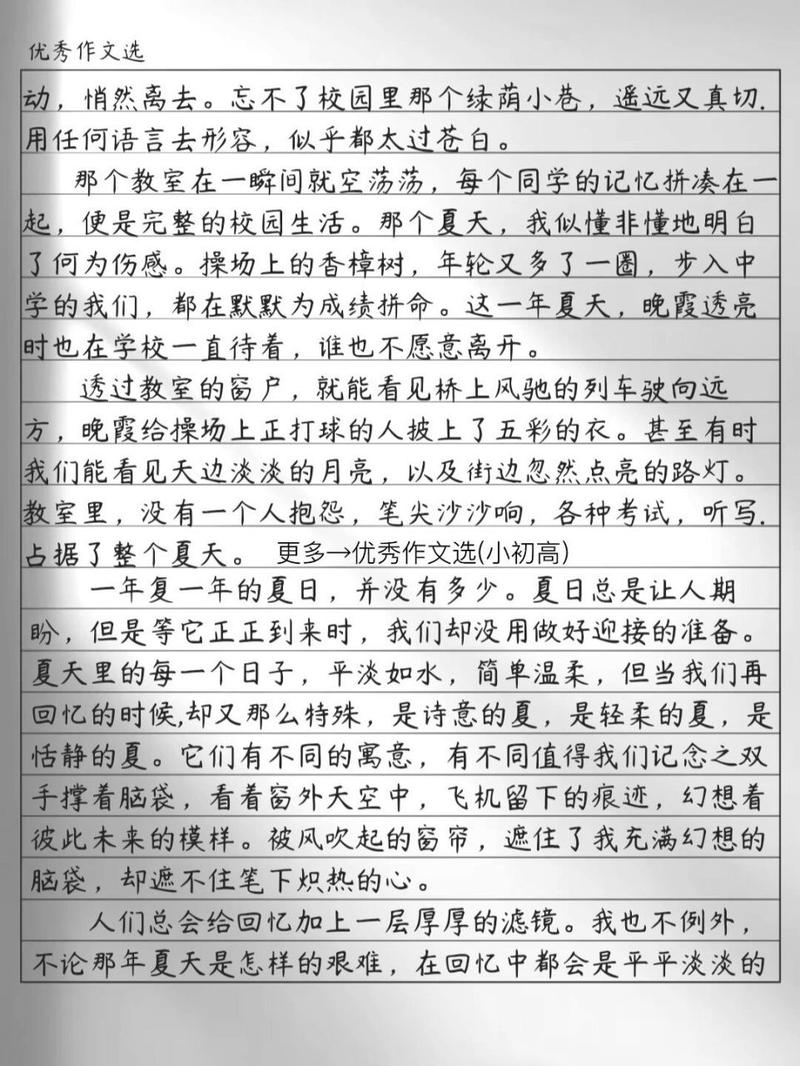 优秀作文选
动，悄然离去。忘不了校园里那个绿荫小巷，遥远又真切.
用任何语言去形容，似乎都太过苍白。
那个教室在一瞬间就空荡荡，每个同学的记忆拼凑在一
起，便是完整的校园生活。那个夏天，我似懂非懂地明白
了何为伤感。操场上的香樟树，年轮又多了一圈，步入中
学的我们，都在默默为成绩拼命。这一年夏天，晚霞透亮
时也在学校一直待着，谁也不愿意离开。
透过教室的窗户，就能看见桥上风驰的列车驶向远
方，晚霞给操场上正打球的人披上了五彩的衣。甚至有时
我们能看见天边淡淡的月亮，以及街边忽然点亮的路灯。
教室里，没有一个人抱怨，笔尖沙沙响，各种考试，听写.
占据了整个夏天。 更多→优秀作文选(小初高)
一年复一年的夏日，并没有多少。夏日总是让人期
盼，但是等它正正到来时，我们却没用做好迎接的准备。
夏天里的每一个日子，平淡如水，简单温柔，但当我们再
回忆的时候,却又那么特殊，是诗意的夏，是轻柔的夏，是
恬静的夏。它们有不同的寓意，有不同值得我们记念之双
手撑着脑袋，看着窗外天空中，飞机留下的痕迹，幻想着
彼此未来的模样。被风吹起的窗帘，遮住了我充满幻想的
脑袋，却遮不住笔下炽热的心。
人们总会给回忆加上一层厚厚的滤镜。我也不例外，
不论那年夏天是怎样的艰难，在回忆中都会是平平淡淡的